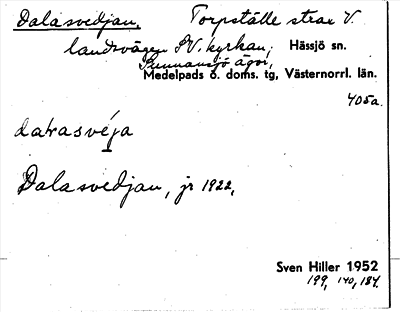 Dalasvedjan. Torpställe strax V.
landsvägen SV. kyrkan, Hässjö sn.
Sunnansjö ägor,
Medelpads ö. doms. tg, Västernorrl. län.
405a.
dalrasvé̱ja
Dalasvedjan, jr 1922,
Sven Hiller 1952
199, 140, 184.